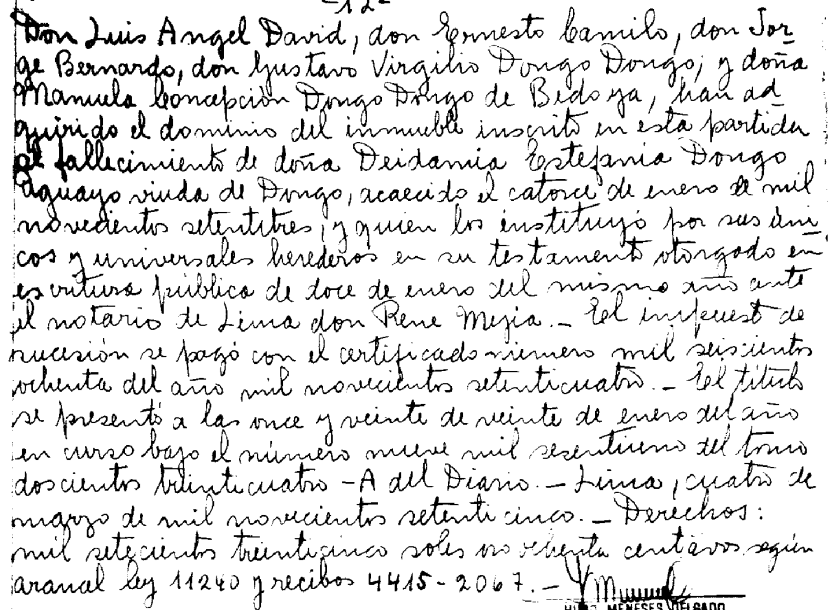 -12-
Don Luis Angel David, don Ernesto Camilo, don Jor
ge Bernardo, don Gustavo Virgilio Dongo Dongo; y doña
Manuela Concepción Dongo Dongo de Bedoya, han ad
quirido el dominio del inmueble inscrito en esta partida
al fallecimiento de doña Deidamia Estefania Dongo
Aguayo viuda de Dongo, acaecido el catorce de enero de mil
novecientos setentitres, y quien los instituyó por sus úni
cos y universales herederos en su testamento otorgado en
escritura pública de doce de enero del mismo año ante
el notario de Lima don Rene Mejia._ El impuest de
sucesión se pagó con el certificado número mil seiscientos
ochenta del año mil novecientos setenticuatro._ El título
se presentó a las once y veinte de veinte de enero del año
en curso bajo el número nueve mil sesentiuno del tomo
doscientos treinticuatro -A del Diario._ Lima, cuatro de
marzo de mil novecientos setenticinco._ Derechos:
mil setecientos treinticinco soles oro ochenta centavos según
aranal ley 11240 y recibos 4415-2067._
MENESES DELGADO